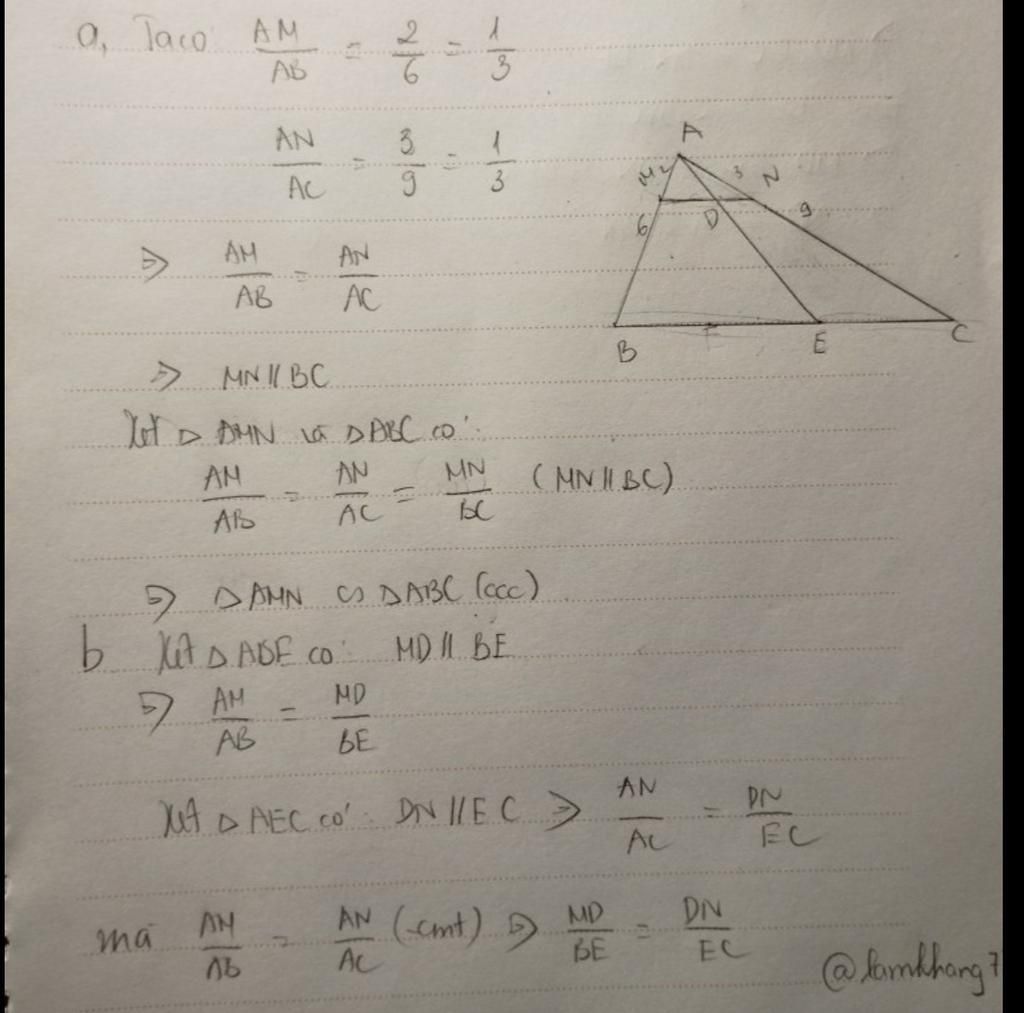 a, Ta có AM/AB = 2/6 = 1/3
AN/AC = 3/9 = 1/3
⇒ AM/AB = AN/AC
⇒ MN // BC
Xét △ AMN và △ABC có:
AM/AB = AN/AC = MN/BC (MN // BC)
⇒ △AMN ∽ △ABC (ccc)
b Xét △ ABE có: MD // BE
⇒ AM/AB = MD/BE
Xét △ AEC có: DN // EC ⇒ AN/AC = DN/EC
mà AM/AB = AN/AC (cmt) ⇒ MD/BE = DN/EC
@lamkhang7
A
M 2 3 N
6 D 9
B F E C